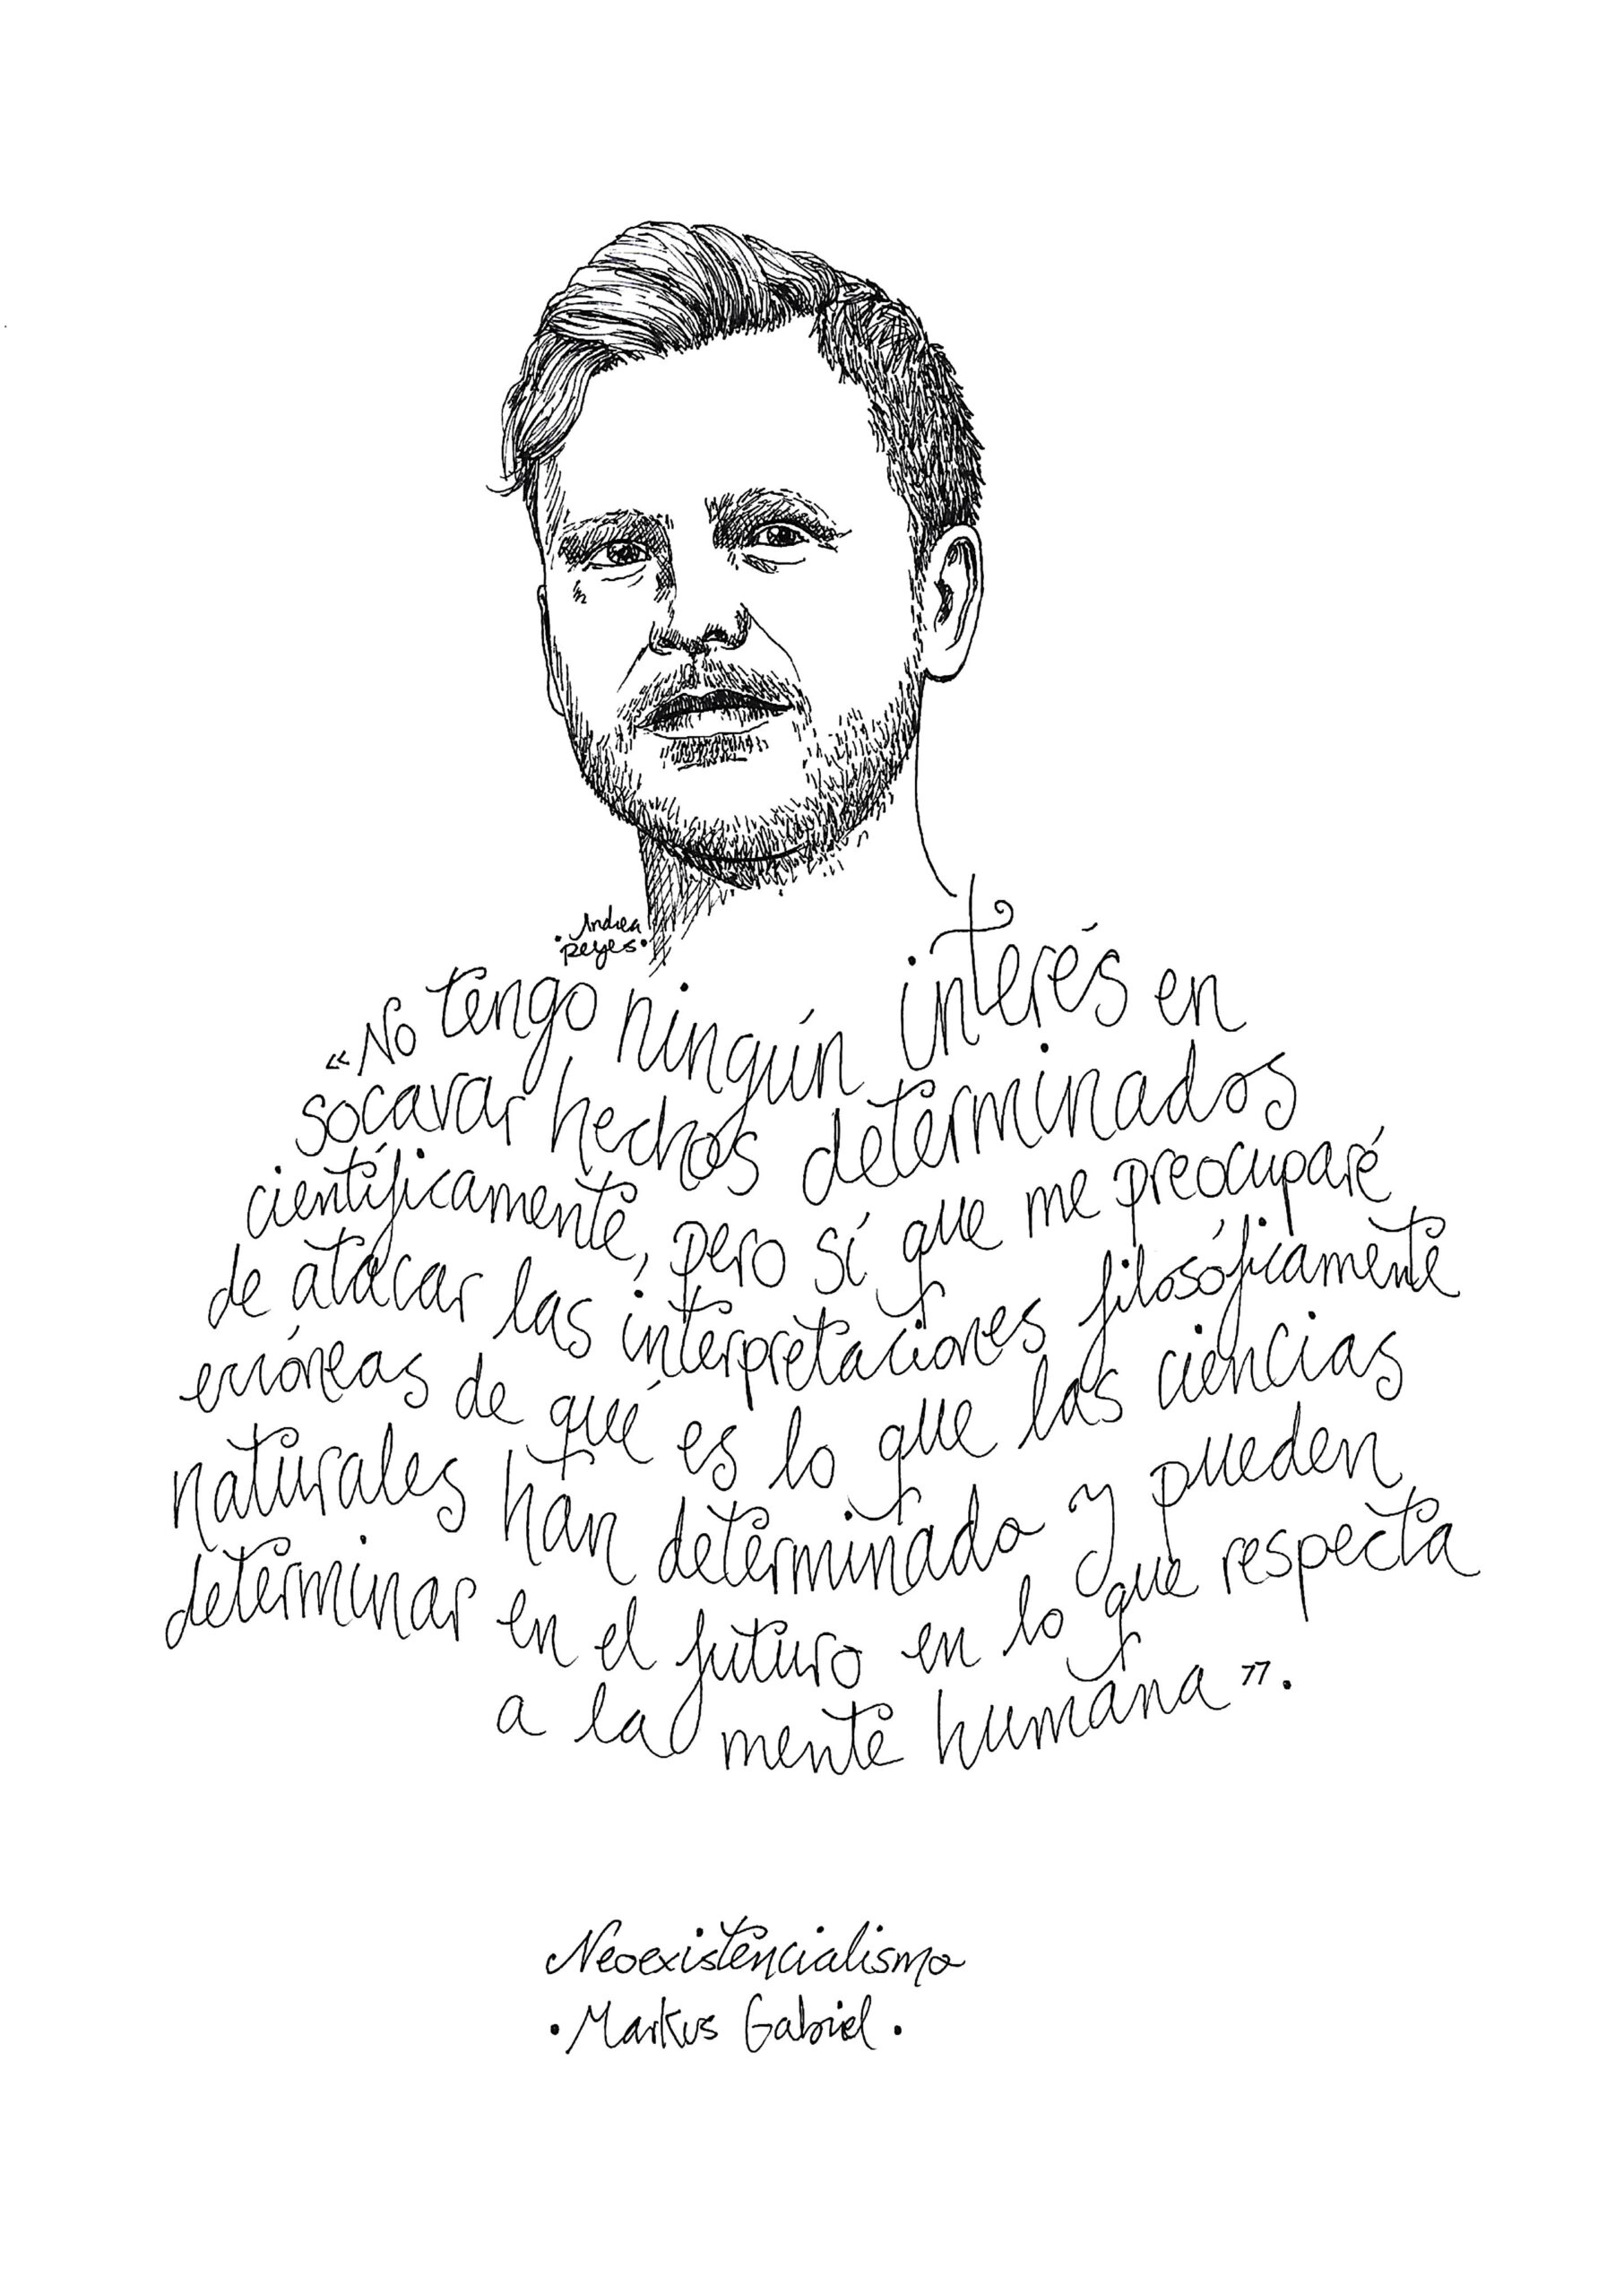 Andrea
•Reyes•
«No tengo ningún interés en
socavar hechos determinados
científicamente, pero sí que me preocuparé
de atacar las interpretaciones filosóficamente
erróneas de qué es lo que las ciencias
naturales han determinado y pueden
determinar en el futuro en lo que respecta
a la mente humana».
Neoexistencialismo
•Markus Gabriel•